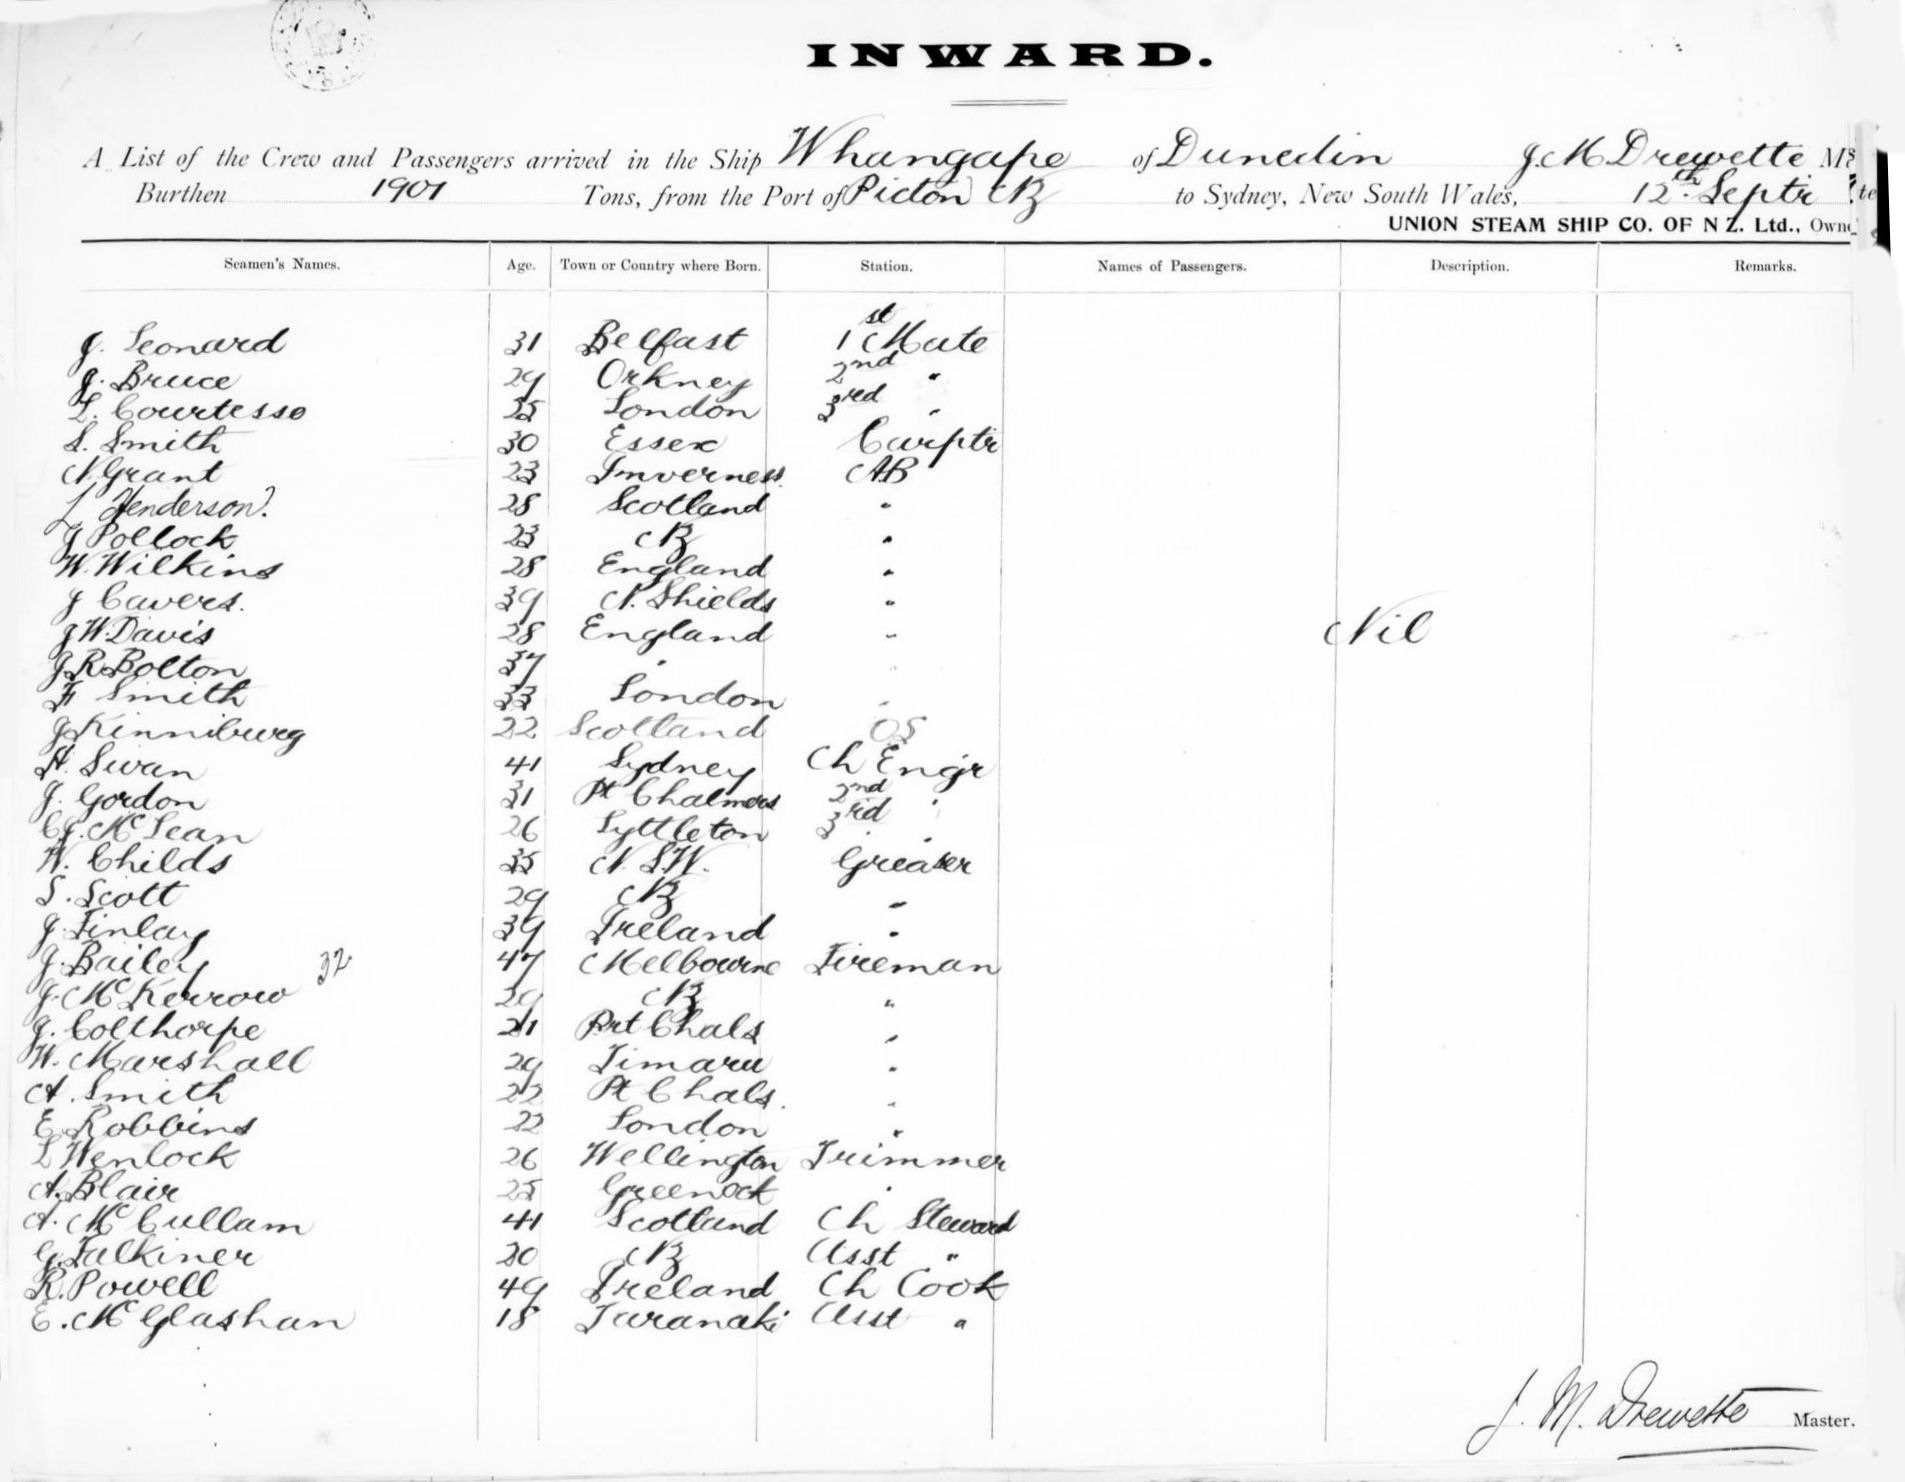 INWARD.
A List of the Crew and Passengers arrived in the Ship Whangape of Dunedin J. M Drewette
Burthen 1901 Tons, from the Port of Picton NZ to Sydney, New South Wales, 12th Septr
UNION STEAM SHIP CO. OF N Z. Ltd.,
Seamen's Names. Age. Town or Country where Born. Station. Names of Passengers. Description. Remarks.
J. Leonard 31 Belfast 1st Mate
J. Bruce 29 Orkney 2nd "
L. Courtesse 35 London 3rd "
S. Smith 30 Essex Carptr
N. Grant 23 Inverness. AB
L Henderson. 28 Scotland "
J Pollock 23 NZ "
W. Wilkins 28 England "
J Cavers. 39 N. Shields "
J W. Davis 28 England " Nil
J R Bolton 37 " "
F Smith 33 London "
J Kinniburg 22 Scotland OS
H. Swan 41 Sydney Ch Engr
J. Gordon 31 Pt Chalmers 2nd "
C J. McLean 26 Lyttleton 3rd "
W. Childs 35 N. S.W. Greaser
S. Scott 29 NZ "
J. Finlay 39 Ireland "
J. Bailey 32 47 Melbourne Fireman
J. McKerrow 29 NZ "
J. Colthorpe 21 Prt Chals "
W. Marshall 29 Timaru "
A. Smith 22 Pt Chals. "
E Robbins 22 London "
L Wenlock 26 Wellington Trimmer
A. Blair 25 Greenock "
A. McCullam 41 Scotland Ch Steward
G. Falkiner 20 NZ Asst "
R. Powell 49 Ireland Ch Cook
E. McGlashan 18 Taranaki Asst "
J. M. Drewette Master.